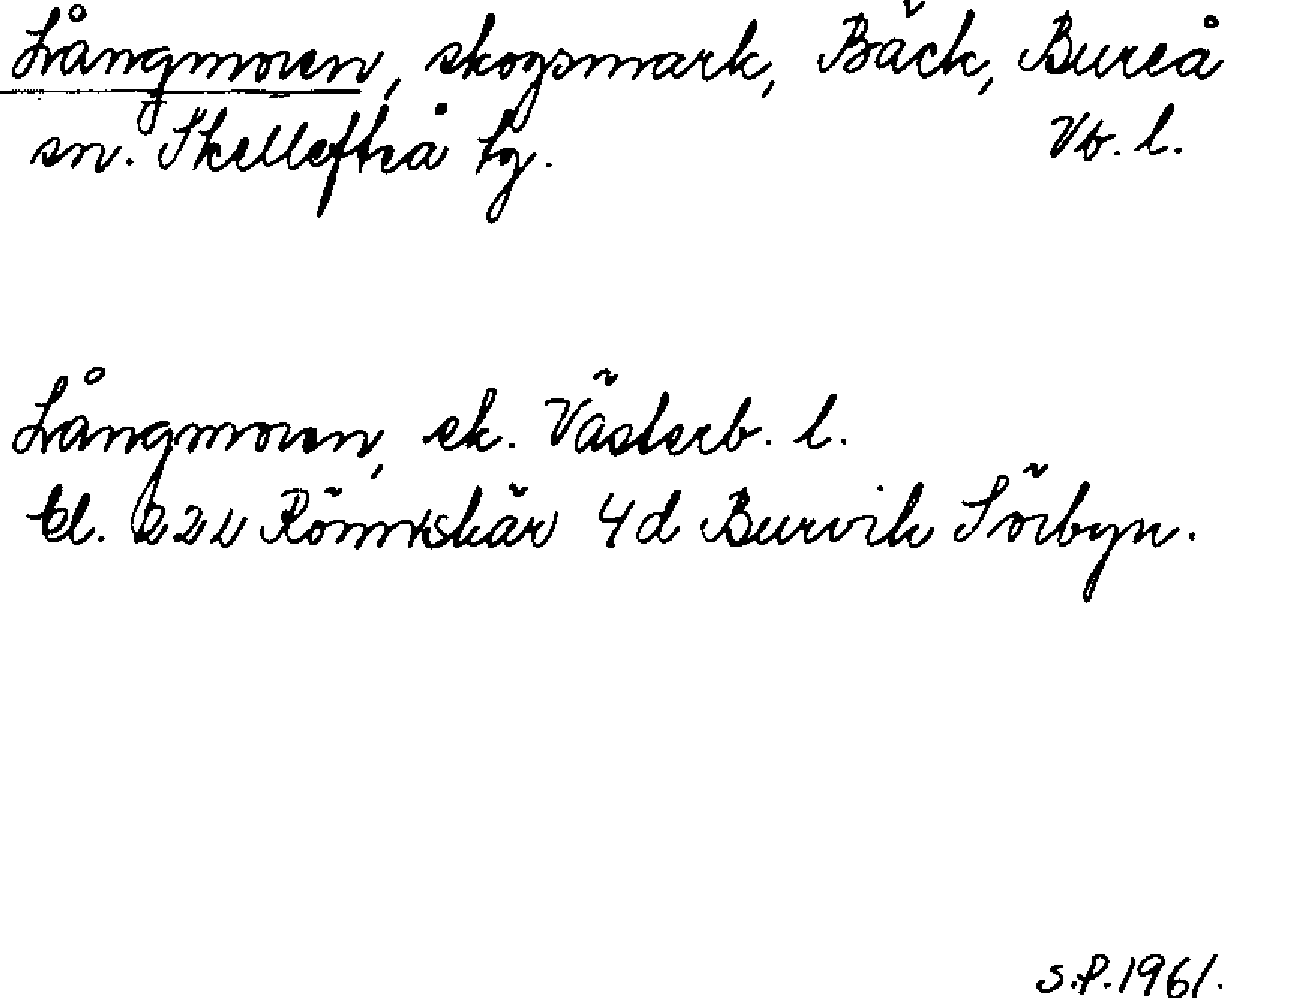 Långmoren, skogsmark, Bäck, Bureå
sn. Skellefteå tg. Vb. l.
Långmoren, ek. Västerb. l.
bl. 22 L Rönnskär 4d Burvik Sörbyn.
S.P. 1961.